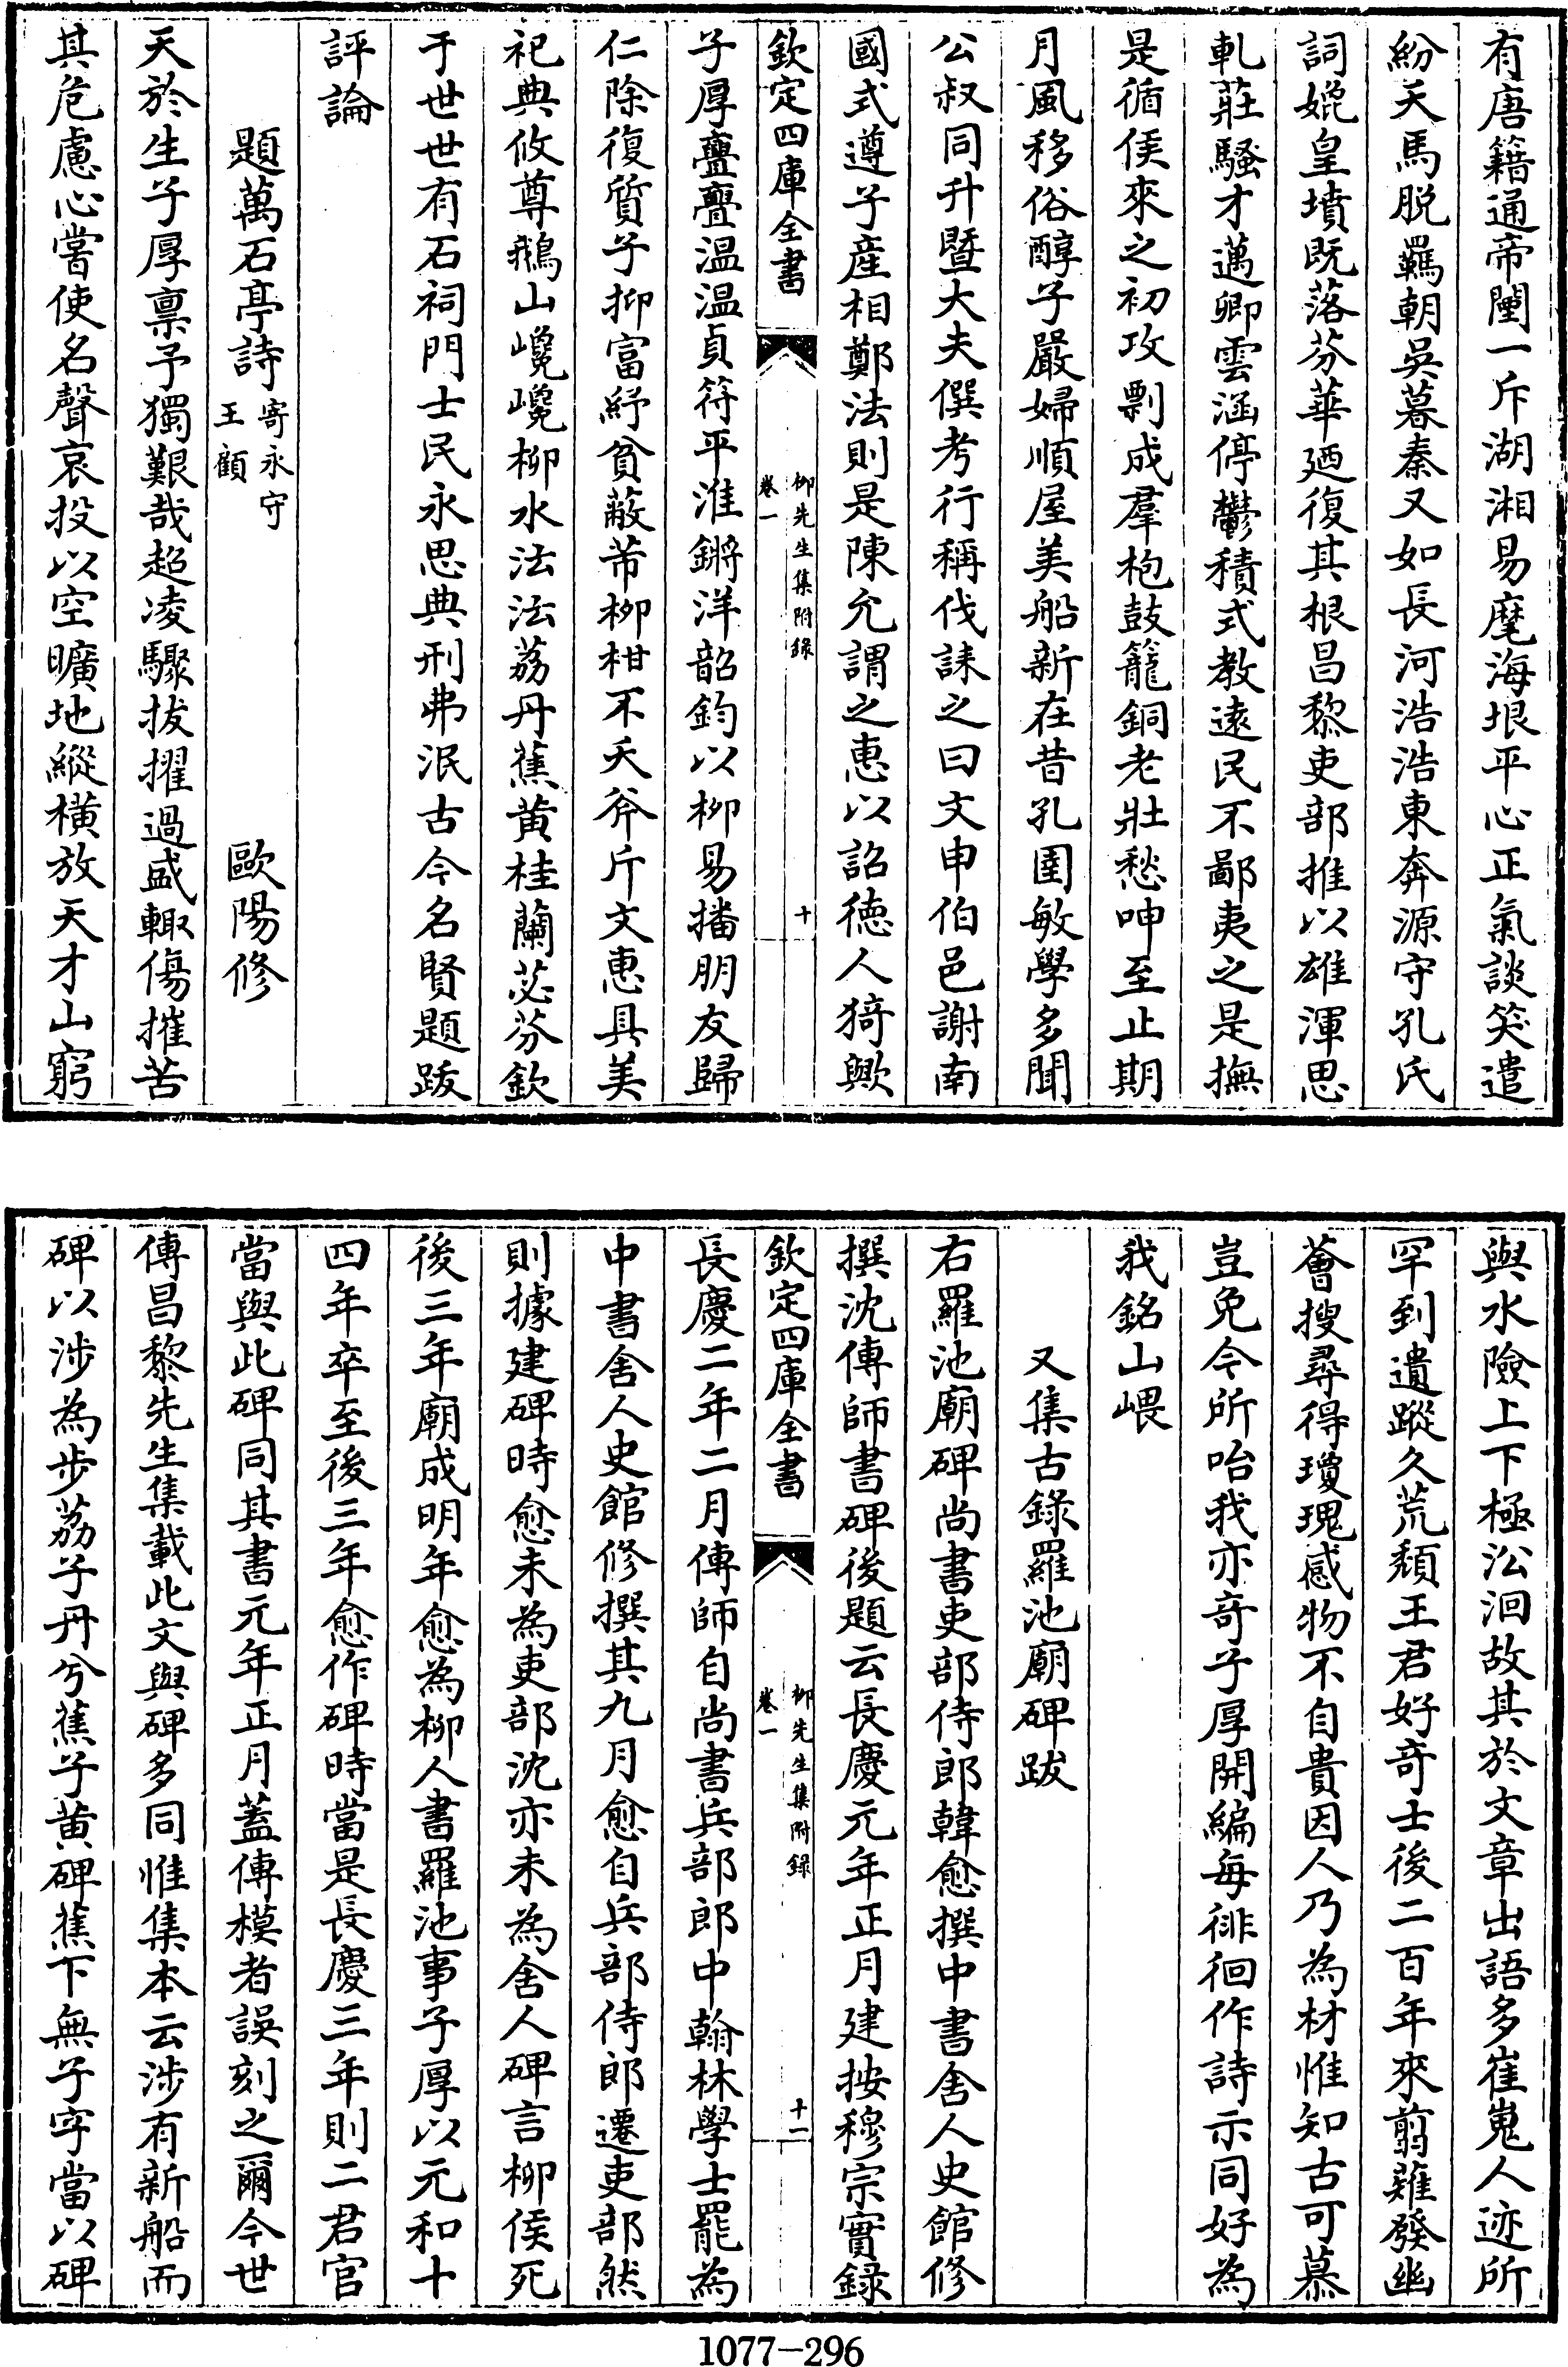 有唐籍通帝閨一斥湖湘易麾海垠平心正氣談笑遣
紛天馬脱羈朝吳暮秦又如長河浩浩東奔源守孔氏
詞媲皇墳既落芬華廼復其根昌黎吏部推以雄渾思
軋莊騷才邁卿雲涵停鬱積式教逺民不鄙夷之是撫
是循侯來之初攻剽成羣枹鼓籠銅老壯愁呻至止期
月風移俗醇子嚴婦順屋美船新在昔孔圉敏學多聞
公叔同升暨大夫僎考行稱伐誄之曰文申伯邑謝南
國式遵子産相鄭法則是陳允謂之惠以詔徳人猗歟
欽定四庫全書
柳先生集附錄
卷一
十
子厚亹亹温温貞符平淮鏘洋韶鈞以柳易播朋友歸
仁除復質子抑富紓貧蔽芾柳柑不夭斧斤文惠具美
祀典攸尊鵝山巉巉柳水沄沄荔丹蕉黄桂蘭苾芬欽
于世世有石祠門士民永思典刑弗泯古今名賢題跋
評論
題萬石亭詩寄永守王顧
歐陽修
天於生子厚禀予獨艱哉超凌驟拔擢過盛輒傷摧苦
其危慮心嘗使名聲哀投以空曠地縱横放天才山窮
與水險上下極㳂洄故其於文章出語多崔嵬人迹所
罕到遺蹤久荒頽王君好竒士後二百年來翦薙發幽
薈搜尋得瓊瑰感物不自貴因人乃為材惟知古可慕
豈免今所咍我亦竒子厚開編每徘徊作詩示同好為
我銘山嵔
又集古錄羅池廟碑跋
右羅池廟碑尚書吏部侍郎韓愈撰中書舍人史館修
撰沈傳師書碑後題云長慶元年正月建按穆宗實録
欽定四庫全書
柳先生集附錄
卷一
十一
長慶二年二月傳師自尚書兵部郎中翰林學士罷為
中書舍人史館修撰其九月愈自兵部侍郎遷吏部然
則據建碑時愈未為吏部沈亦未為舍人碑言柳侯死
後三年廟成明年愈為柳人書羅池事子厚以元和十
四年卒至後三年愈作碑時當是長慶三年則二君官
當與此碑同其書元年正月蓋傳模者誤刻之爾今世
傳昌黎先生集載此文與碑多同惟集本云涉有新船而
碑以涉為步荔子丹兮蕉子黄碑蕉下無子字當以碑
1077-296